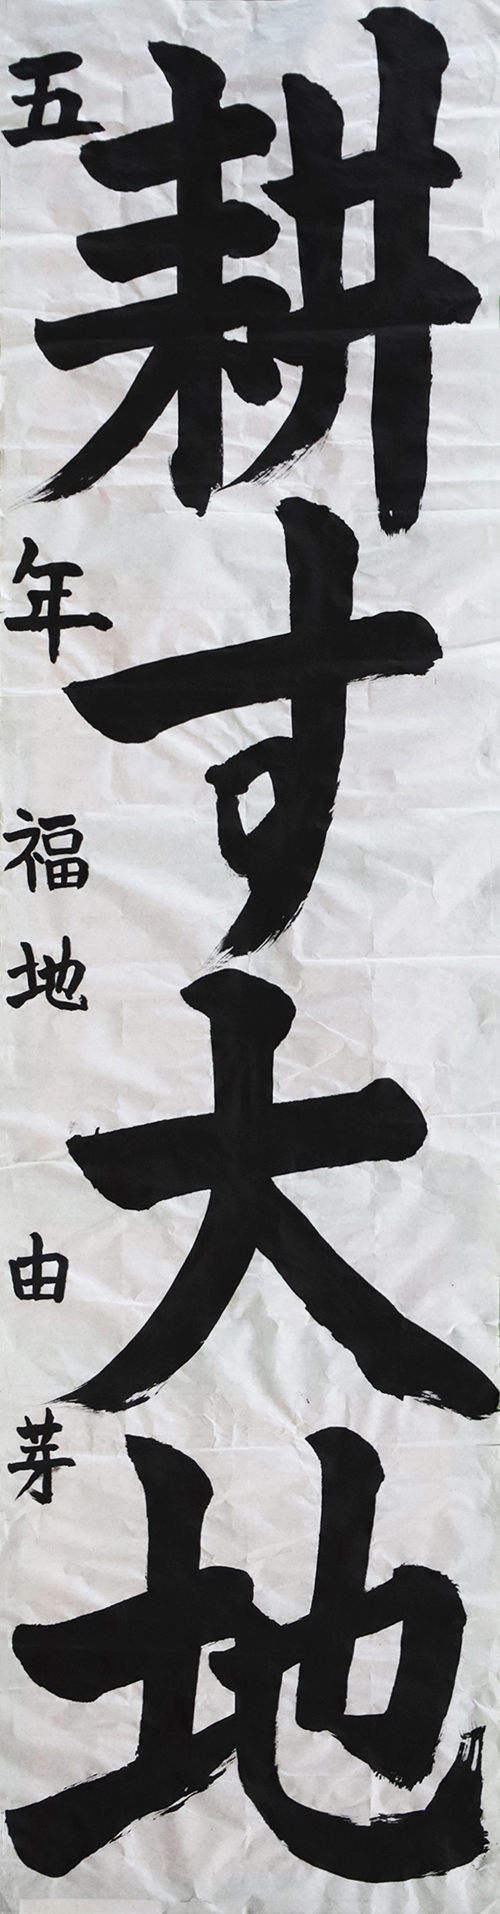 耕す大地
五年 福地 由芽